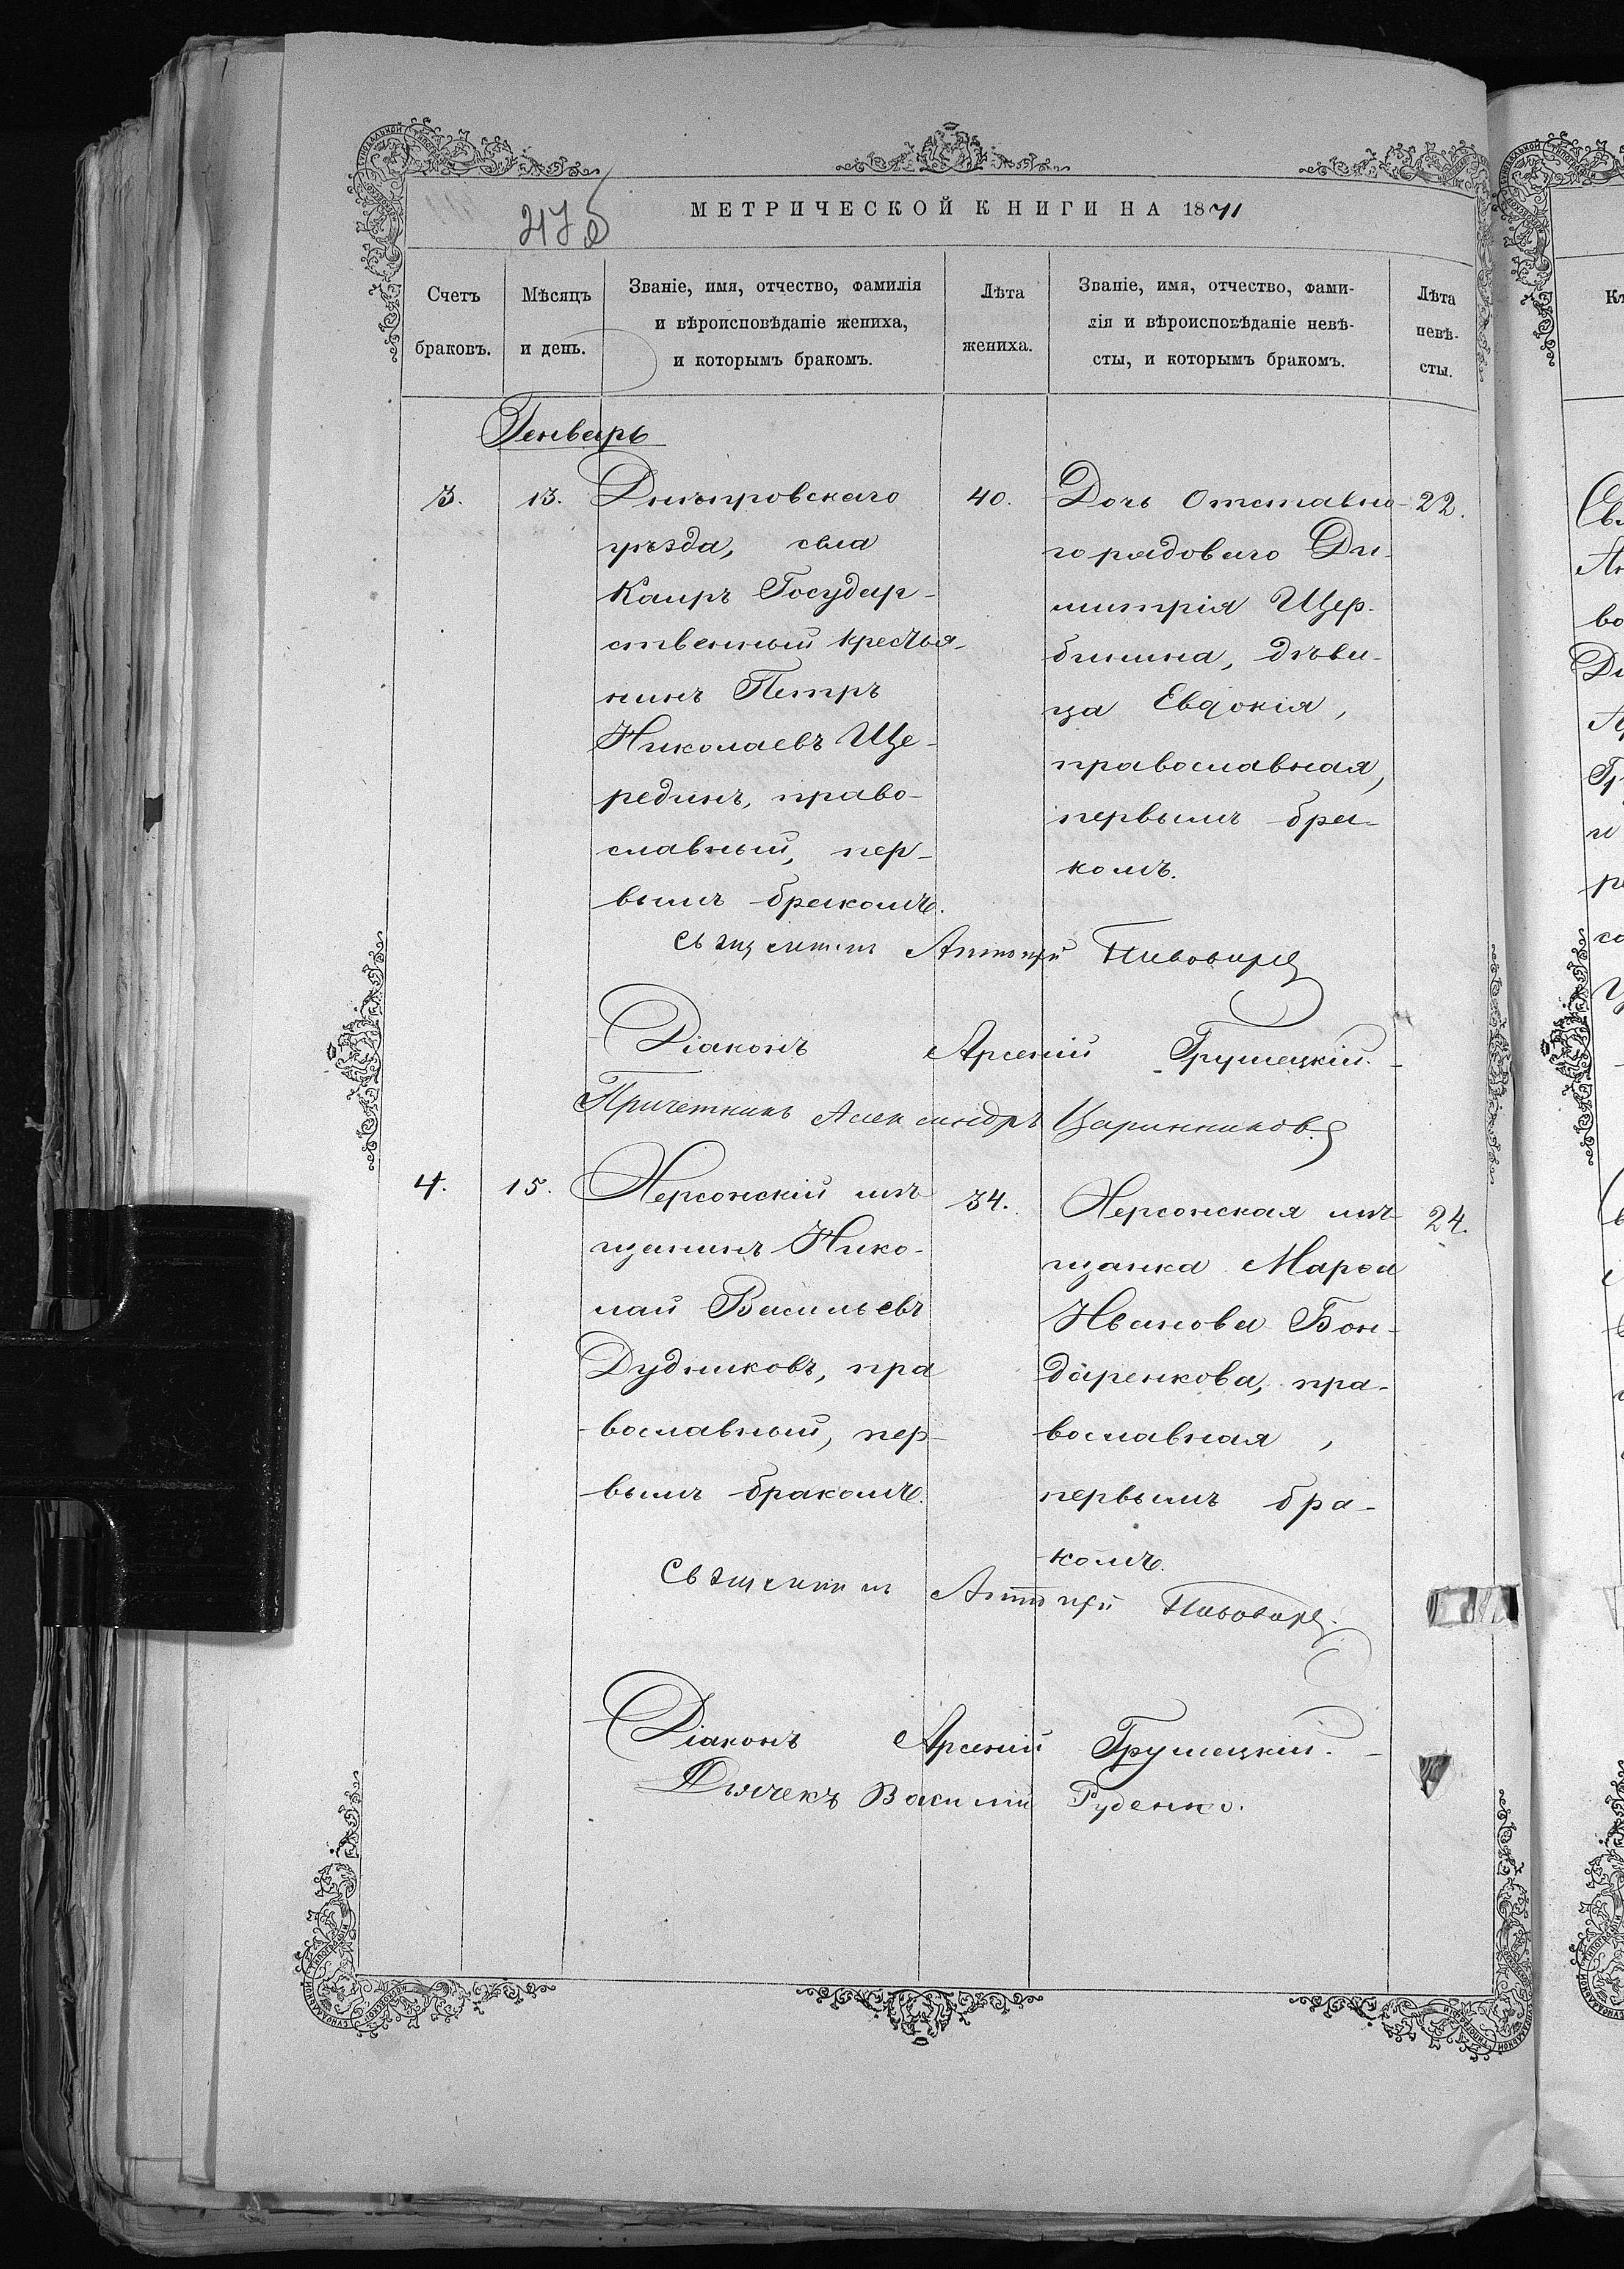 МЕТРИЧЕСКОЙ КНИГИ НА 1871
Счетъ браковъ.
Мѣсяцъ и день.
Званіе, имя, отчество, фамилія
и вѣроисповѣданіе жениха,
и которымъ бракомъ.
Лѣта жениха.
Званіе, имя, отчество, фами-
лія и вѣроисповѣданіе невѣ-
сты, и которымъ бракомъ.
Лѣта невѣ-
сты.
Генварь
3.
13.
Днѣпровскаго
уѣзда, села
Каиръ Государ-
ственный крестья-
нинъ Петръ
Николаевъ Ще-
рединъ, право-
славный, пер-
вымъ бракомъ.
40.
Дочь Отставно-
го рядоваго Ди-
митрія Щер-
бинина, дѣви-
ца Евдокія,
православная,
первымъ бра-
комъ.
22.
Священникъ Антоній Пивоваръ
Діаконъ Арсеній Грушецкій.
Причетникъ Александръ Царинниковъ
4.
15.
Херсонскій мѣ-
щанинъ Нико-
лай Васильевъ
Дудниковъ, пра
вославный, пер-
вымъ бракомъ.
34.
Херсонская мѣ-
щанка Марѳа
Иванова Бон-
даренкова, пра-
вославная,
первымъ бра-
комъ.
24.
Священникъ Антоній Пивоваръ.
Діаконъ Арсеній Грушецкій.
Дьячекъ Василий Руденко.